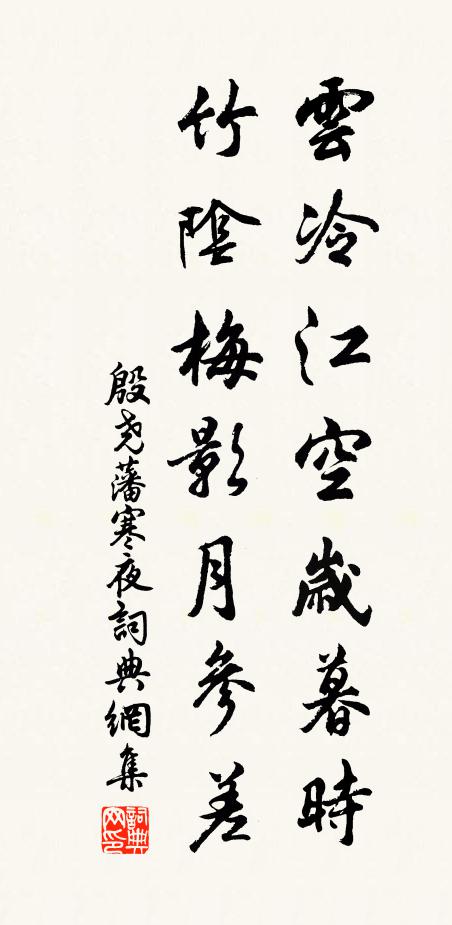 雲冷江空歲暮時
竹陰梅影月參差
殷尧藩寒夜詞典網集
詞典网印